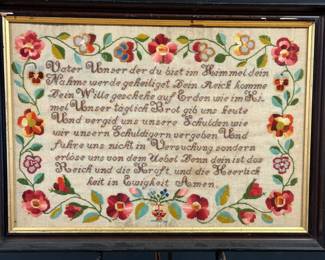 Vater Unser der du bist im Himmel dein
Nahme werde geheiliget Dein Reich komme
Dein Wille geschehe auf Erden wie im Him
mel Unser täglich Brot gib uns heute
Und vergid uns unsere Schulden wie
wir unsern Schuldigern vergeben Und
fuhre uns nicht in Versuchung sondern
erlöse uns von dem Uebel Denn dein ist das
Reich und die Kraft und die Heerlich
keit in Ewigkeit Amen.